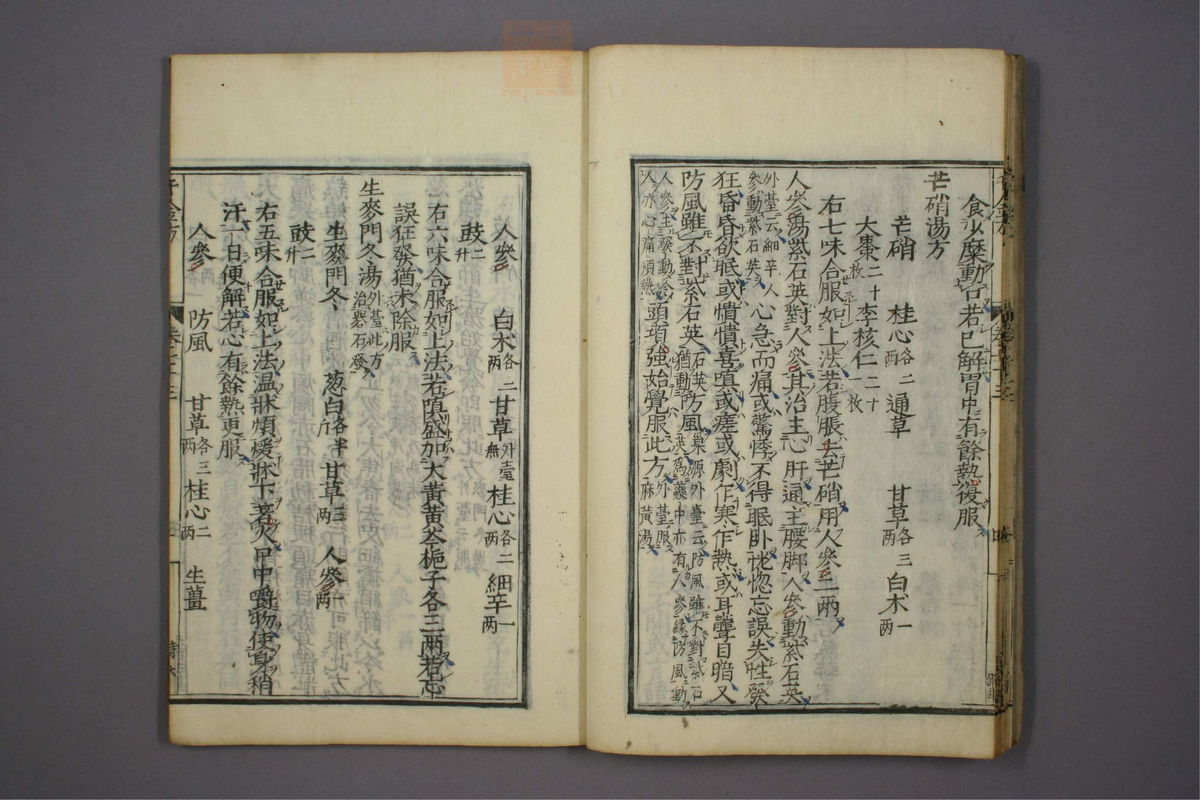 食少糜動石若已解胃中有餘熱復服
芒硝湯方
芒硝 桂心各二兩 通草 甘草各三兩 白朮一兩
大棗二十枚 李核仁二十一枚
右七味合服如上法若腹脹去芒硝用人參二兩
人參湯紫石英對人參其治主心肝通主腰脚人參動紫石英
外臺云細辛人參動紫石英 心急而痛或驚悸不得眠卧恍惚忘誤失性發
狂昏昏欲眠或憒憒喜嗔或瘥或劇乍寒乍熱或耳聾目暗又
防風雖不對紫石英猶動防風 石英防風巢源外臺云防風雖不對紫石英為藥中亦有人參緣防風動
人參主發動令人亦心痛煩熱 頭項強始覺服此方外臺服麻黃湯
人參 白朮各二兩 甘草外臺無 桂心各二兩 細辛一兩
豉二升
右六味合服如上法若嗔盛加大黃黃芩梔子各三兩若忘
誤狂發猶未除服
生麥門冬湯外臺此方治礜石發
生麥門冬 葱白各半斤 甘草三兩 人參一兩
豉二升
右五味合服如上法溫牀煩煖牀下著火口中嚼物使身稍
汗一日便解若心有餘熱更服
人參 防風 甘草各三兩 桂心二兩 生薑